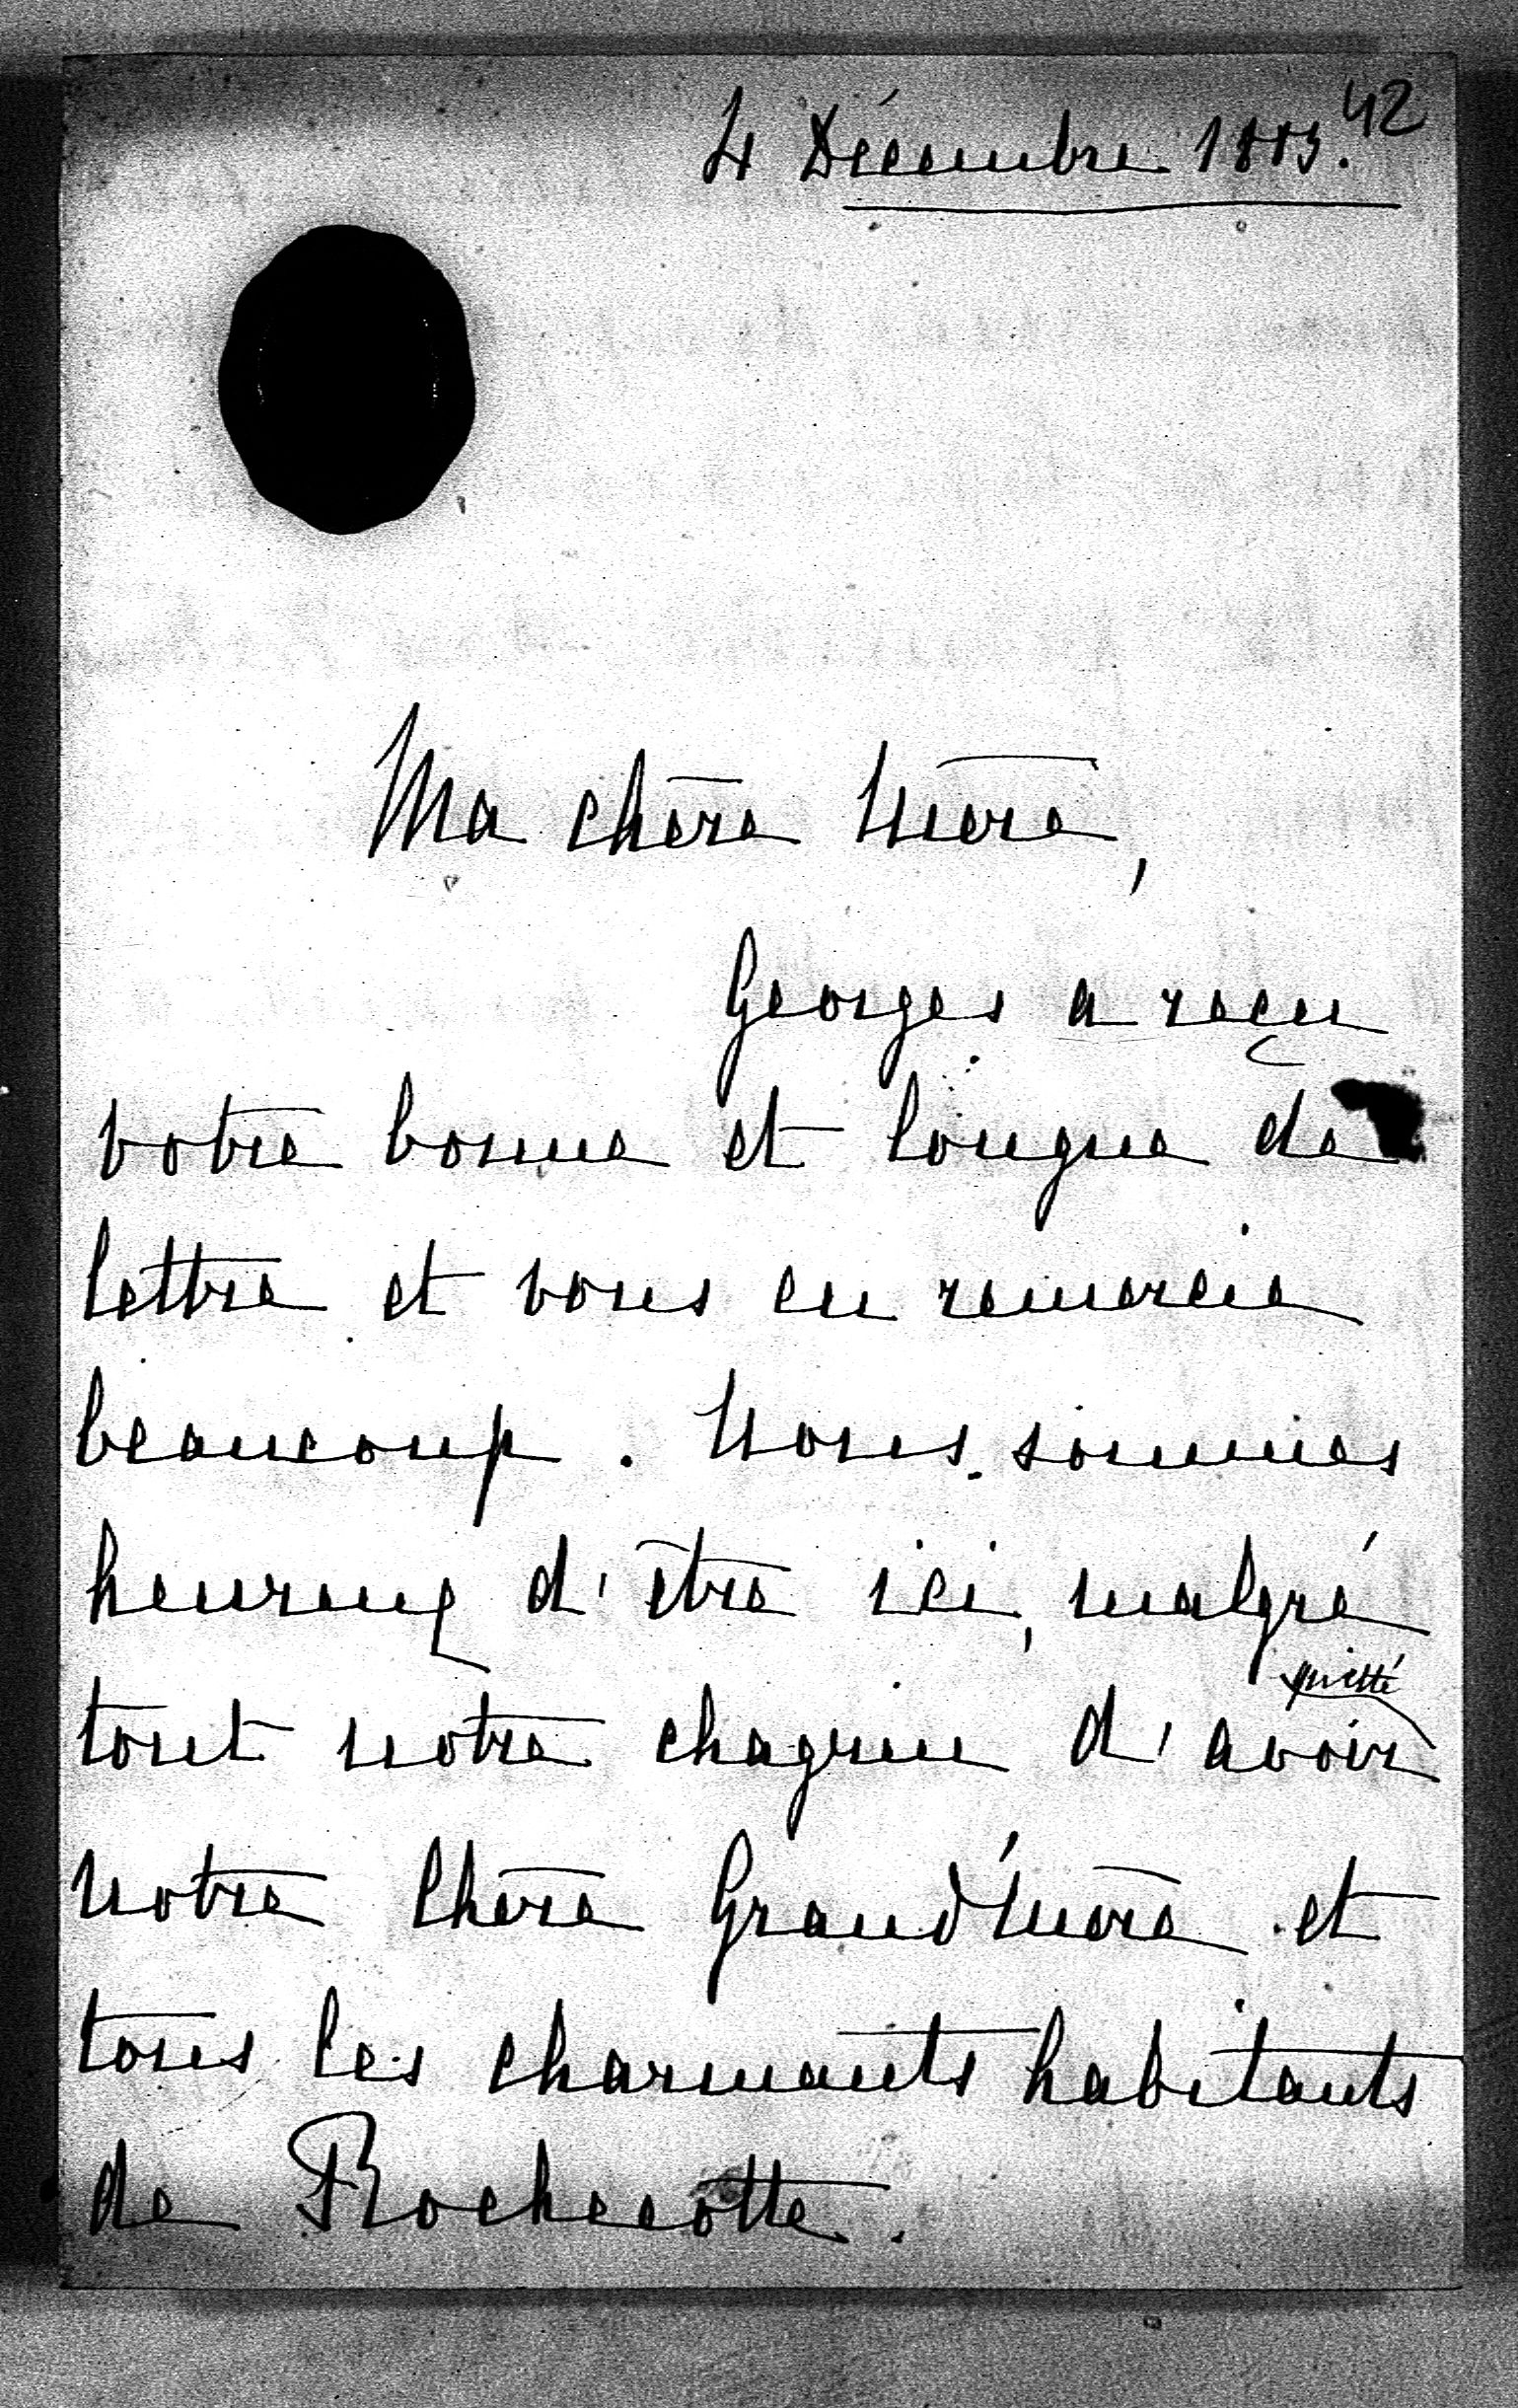 42
4 Décembre 1883.
Ma chère Mère,
Georges a reçu
votre bonne et longue de
lettre et vous en remercie
beaucoup. Nous sommes
heureux d'être ici, malgré
quitté
tout notre chagrin d'avoir
notre chère Grand'Mère et
tous les charmants habitants
de Rochecotte.